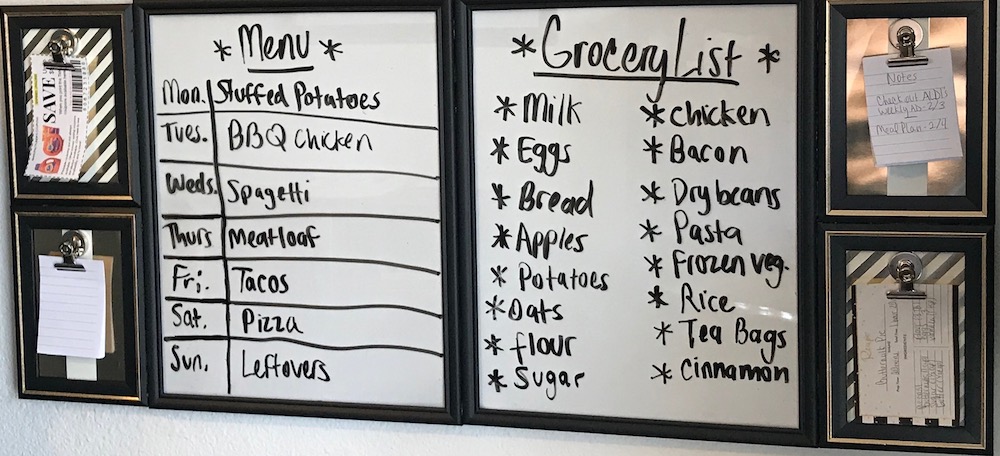 SAVE
* Menu *
Mon. Stuffed Potatoes
Tues. BBQ Chicken
Weds. Spagetti
Thurs Meatloaf
Fri. Tacos
Sat. Pizza
Sun. Leftovers
* Grocery List *
* Milk
* Eggs
* Bread
* Apples
* Potatoes
* Oats
* flour
* Sugar
* chicken
* Bacon
* Dry beans
* Pasta
* Frozen veg.
* Rice
* Tea Bags
* Cinnamon
Notes
Check out ALDI's
Weekly Ad - 2/3
Meal Plan - 2/4